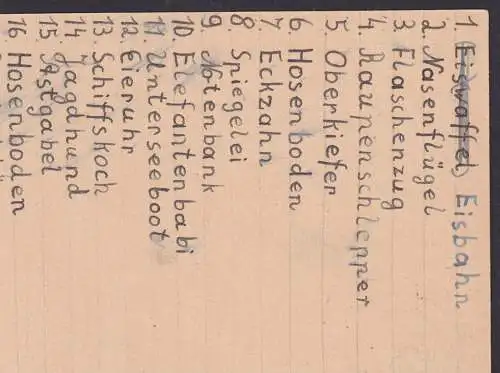 1. Eiswaffel, Eisbahn
2. Nasenflügel
3 Flaschenzug
4. Raupenschlepper
5. Oberkiefer
6. Hosenboden
7. Eckzahn
8. Spiegelei
9. Notenbank
10. Elefantenbabi
11. Unterseeboot
12. Eieruhr
13. Schiffskoch
14. Jagdhund
15. Astgabel
16. Hosenboden